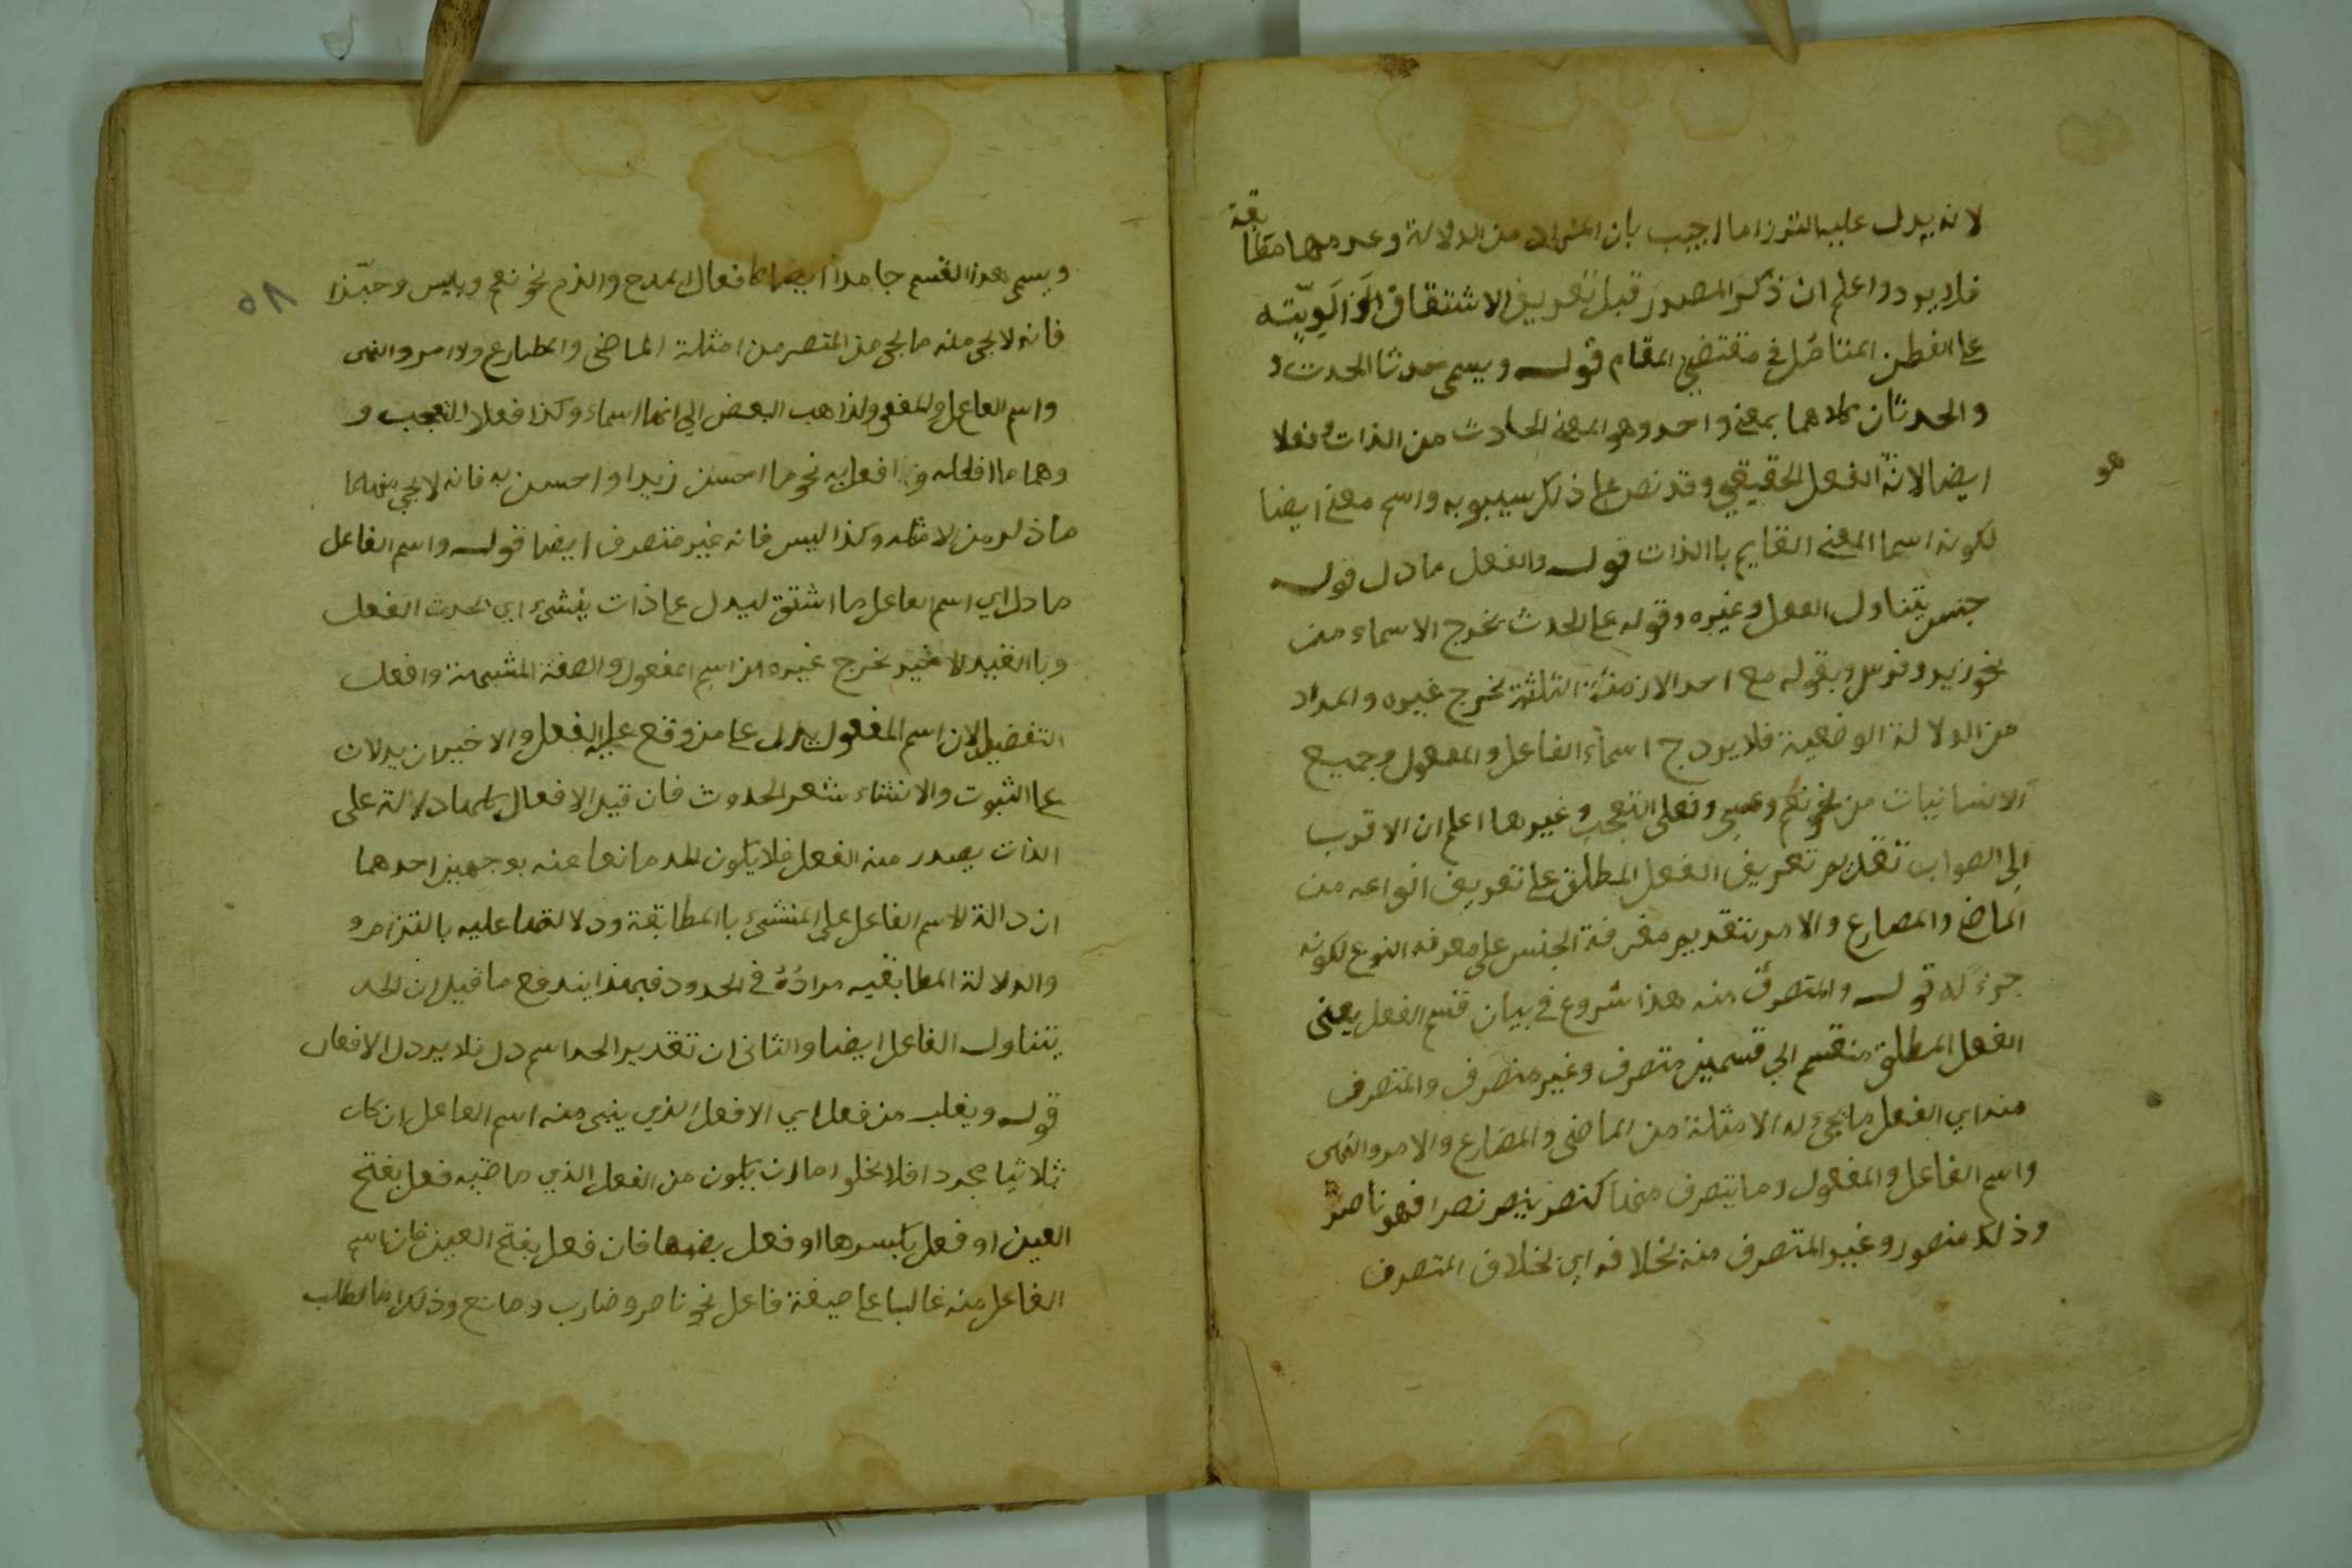 لانه يدل عليه التزاما اجيب بان المراد من الدلالة وعدمها مطابقة
فلا يرد واعلم ان ذكر المصدر قبل تعريف الاشتقاق
على الفطن المتامل في مقتضى المقام قوله ويسمى حدثا الحدث و
والحدثان كلاهما بمعنى واحد وهو المعنى الحادث من الذات وفعلا
هو
ايضا لانه الفعل الحقيقي وقد نص على ذلك سيبويه واسم معنى ايضا
لكونه اسما المعنى القايم باالذات قوله والفعل ما دل قوله
جنس يتناول الفعل وغيره وقوله على الحدث يخرج الاسماء من
نحو زيد وفرس وبقوله مع احد الازمنة الثلثة يخرج غيره والمراد
من الدلالة الوضعية فلا يرد ج اسماء الفاعل والمفعول وجميع
من نحو نعم وعسى وفعلى التعجب وغيرها اعلم ان الاقرب
الى الصواب تقديم تعريف الفعل المطلق على تعريف انواعه من
الماضي والمضارع والامر بتقديم معرفة الجنس على معرفة النوع لكونه
جزء له قوله والمتصرف منه هذا شروع في بيان قسم الفعل يعنى
الفعل المطلق منقسم الى قسمين متصرف وغير متصرف والمتصرف
منه اي الفعل ما يجيء له الامثلة من الماضي والمضارع والامر والنهى
واسم الفاعل والمفعول وما يتصرف منها كنصر ينصر نصرا فهو ناصر
وذلك منصور وغير المتصرف منه بخلافه اي بخلاف المتصرف
٥٨
ويسمى هذا القسم جامدا ايضا كافعال المدح والذم نحو نعم وبئس وحبّذا
فانه لا يجى منه ما يجى من المتصر من امثلة الماضى والمضارع ولا امر والنهى
واسم الفاعل والمفعول ولذا ذهب البعض الى انها اسماء وكذا فعلا التعجب و
وهما ما افعله و افعل به نحو ما احسن زيدا واحسن به فانه لا يجى منهما
ما ذكر من الامثله وكذا ليس فانه غير متصرف ايضا قوله واسم الفاعل
ما دل اي اسم الفاعل ما اشتق ليدل على ذات ينشىء اي يحدث الفعل
وباالقيد الاخير يخرج غيره من اسم المفعول والصفة المشبهة وافعل
التفضيل لان اسم المفعول يدل على من وقع عليه الفعل والاخيران يدلان
على الثبوت والانشاء شعر الحدوث فان قيل الافعال كلها دلالة على
الذات يصدر منه الفعل فلا يكون الحد مانعا عنه بوجهين احدهما
ان دالة لاسم الفاعل على المنشىء باالمطابقة ودلالتها عليه بالتزام و
والدلالة المطابقيه مرادة في الحدود فبهذا يندفع ما قيل ان الحد
يتناول الفاعل ايضا والثانى ان تقدير الحد اسم دل فلا يرد الافعال
قوله ويغلب من فعل اي الافعل الذي يبنى منه اسم الفاعل ان كان
ثلاثيا مجردا فلا يخلو اما ان يكون من الفعل الذي ماضيه فعل بفتح
العين او فعل بكسرها او فعل بضمها فان فعل بفتح العين فان اسم
الفاعل منه غالبا على صيغة فاعل نحو ناصر وضارب ومانع وذلك